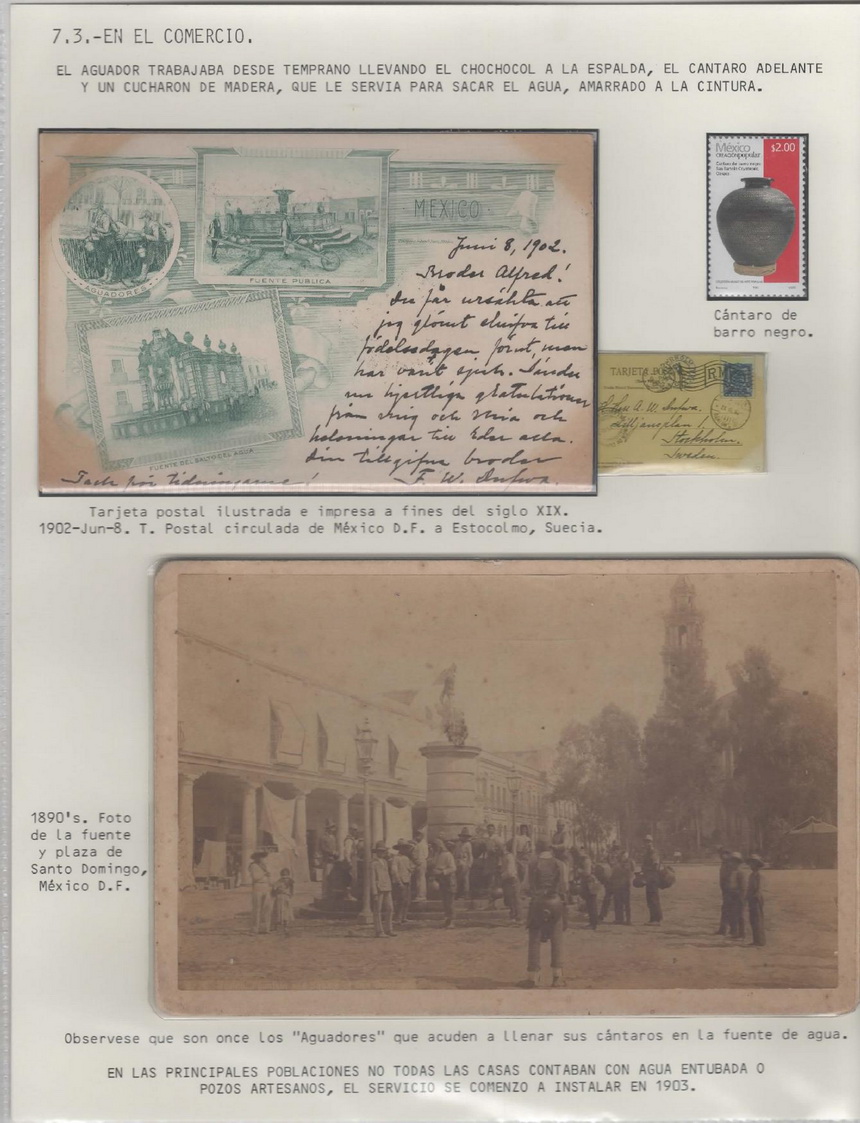 7.3.-EN EL COMERCIO.
EL AGUADOR TRABAJABA DESDE TEMPRANO LLEVANDO EL CHOCHOCOL A LA ESPALDA, EL CANTARO ADELANTE
Y UN CUCHARON DE MADERA, QUE LE SERVIA PARA SACAR EL AGUA, AMARRADO A LA CINTURA.
MEXICO
AGUADORES
FUENTE PUBLICA
FUENTE DEL SALTO DEL AGUA
Juni 8, 1902.
Broder Alfred!
Du får ursäkta att
jag glömt skrifva till
födelsedagen förut, men
har varit sjuk. Sänder
nu hjertliga gratulationer
från mig och Mia och
helsningar till Eder alla.
Din tillgifne broder
F. W.
Tack för tidningarne!
México
creación popular
$2.00
Cántaro de barro negro
Cántaro de
barro negro.
TARJETA
A. W.
Lilljansplan 1,
Stockholm.
Sweden.
Tarjeta postal ilustrada e impresa a fines del siglo XIX.
1902-Jun-8. T. Postal circulada de México D.F. a Estocolmo, Suecia.
1890's. Foto
de la fuente
y plaza de
Santo Domingo,
México D.F.
Observese que son once los "Aguadores" que acuden a llenar sus cántaros en la fuente de agua.
EN LAS PRINCIPALES POBLACIONES NO TODAS LAS CASAS CONTABAN CON AGUA ENTUBADA O
POZOS ARTESANOS, EL SERVICIO SE COMENZO A INSTALAR EN 1903.